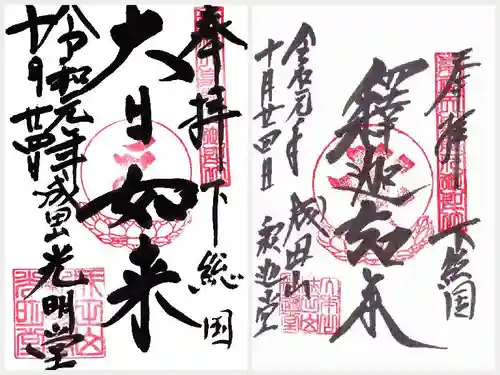 奉拝 下総国
大日如来
令和元年
十月廿四日 成田山光明堂
奉拝 下総国
釋迦如来
令和元年
十月廿四日
成田山
釈迦堂